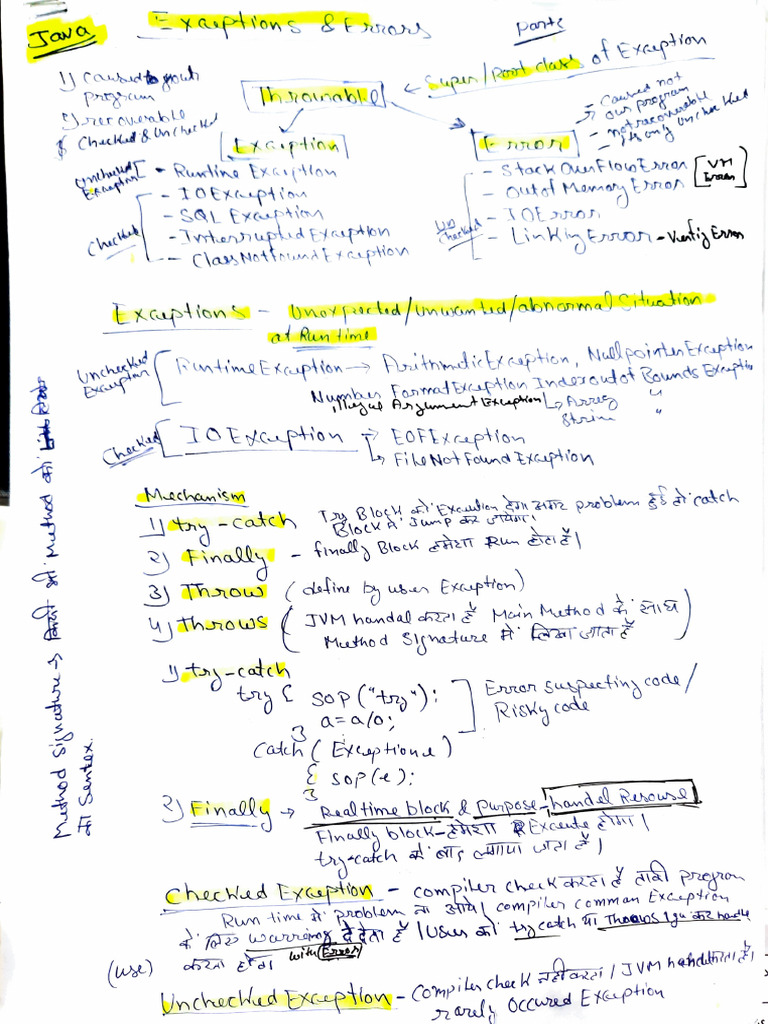 Java
Exceptions & Errors
parts
1) caused to your program
2) recoverable
3 Checked & Unchecked
Throwable ← Super/Root class of Exception
Exception
Error
- Caused not our program
- not recoverable
- It's only Unchecked
Unchecked Exception
- Runtime Exception
Checked
- IOException
- SQL Exception
- Interrupted Exception
- ClassNotFound Exception
Unchecked
- StackOverFlowError
- OutOfMemory Error
[VM Error]
- IOError
- Linking Error - Verify Error
Exceptions - Unexpected/unwanted/abnormal Situation
at Run time
Unchecked Exception
RuntimeException → ArithmeticException, NullpointerException
Number FormatException IndexoutofBounds Exception
, Illegal Argument Exception
↳ Array "
String "
Checked
IOException → EOFException
↳ FileNotFound Exception
Mechanism
1) try-catch Try Block का Execution होगा अगर problem हुई तो catch
Block में Jump कर जायेगा।
2) Finally - finally Block हमेशा Run होता है।
3) Throw (define by user Exception)
4) Throws (JVM handal करता है Main Method के साथ
Method Signature में लिखा जाता है)
1) try-catch
try { SOP("try");
a=a/0;
}
Catch (Exception e)
{ SOP(e);
}
Error suspecting code/
Risky code
2) Finally → Realtime block & purpose - handel Resouse
Finally block - हमेशा Excute होगा।
try-catch के बाद लगाया जाता है।
Checked Exception - compiler check करता है ताकी program
Run time में problem ना आये। compiler comman Exception
के लिए warring दे देता है। User को try catch या Throws use कर handle
with Error
(use) करना होगा
Unchecked Exception - Compiler check नही करता। JVM handle करता है।
rarely Occured Exception
Method Signature → किसी भी Method को
का Sentex.